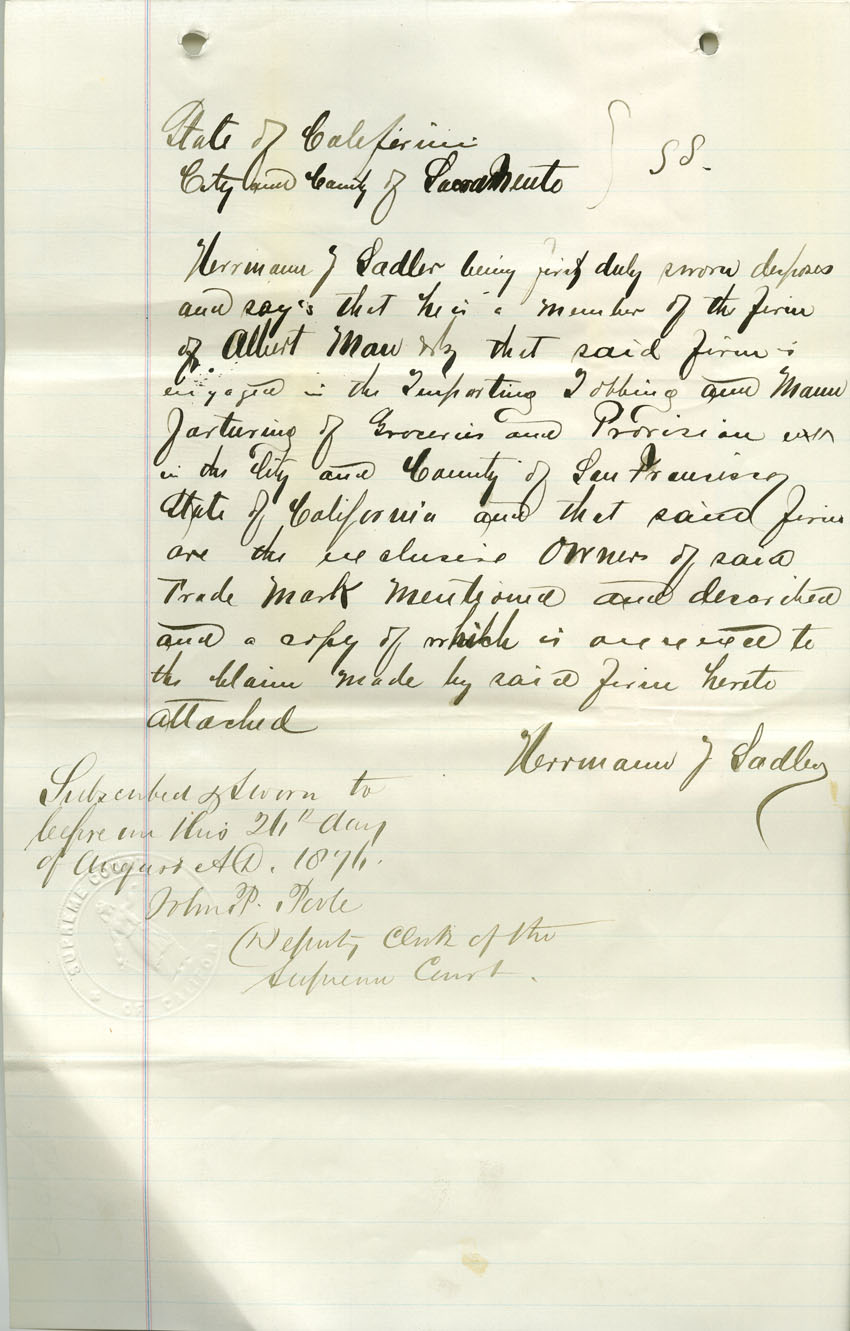 State of California } SS.
City and County of Sacramento
Herrmann J Sadler being first duly sworn deposes
and say's that he is a member of the firm
of Albert Mau &Co that said firm is
engaged in the Importing Jobbing and Manu
facturing of Groceries and Provision
in the City and County of San Francisco
State of California and that said firm
are the exclusive Owners of said
Trade Mark Mentioned and described
and a copy of which is annexed to
the Claim made by said firm hereto
attached
Herrmann J Sadler
Subscribed & Sworn to
before me this day
of August A.D. 187
John P. Poole
Deputy Clerk of the
Supreme Court.
SUPREME CO
OF CALIFORNIA